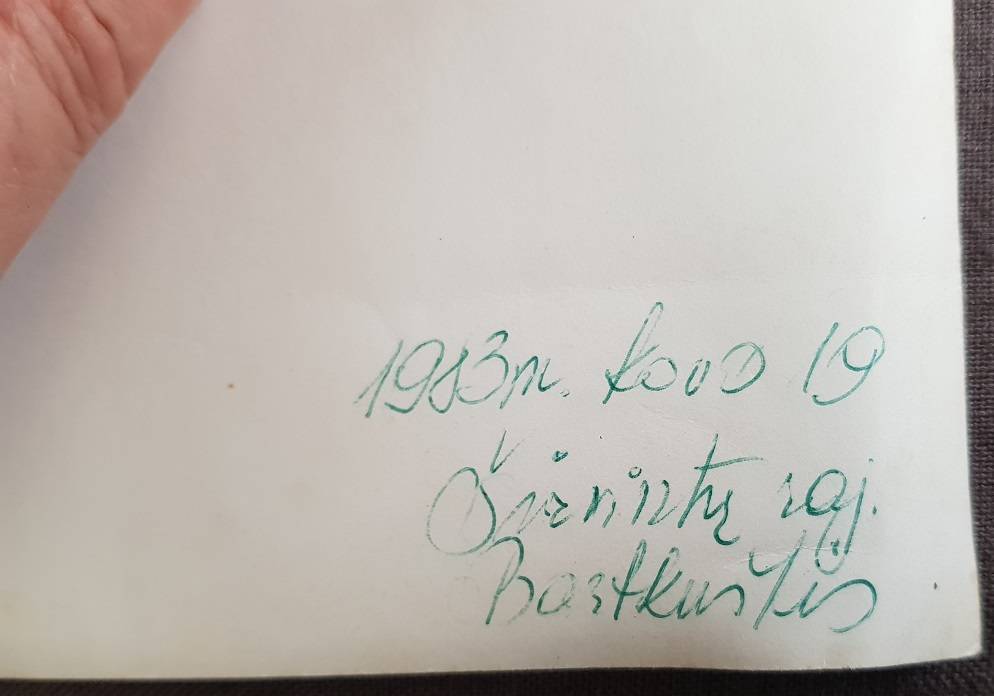 1983m. kovo 19
Širvintų raj.
Bartkuškis